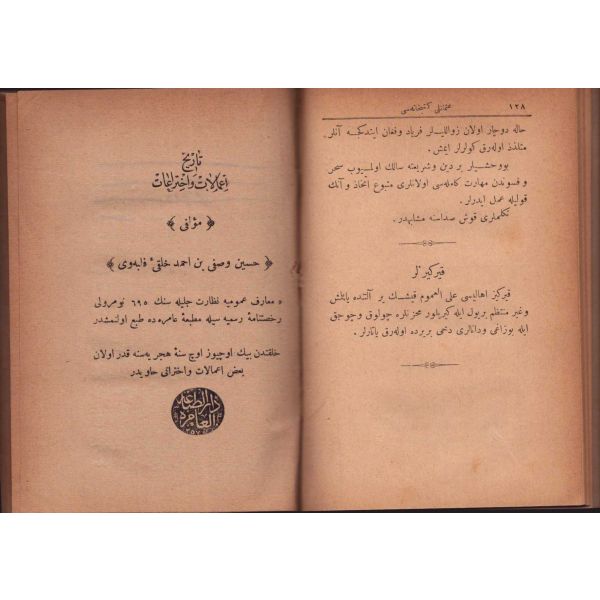 ١٢٨
عثمانلى كتبخانه‌سى
حاله دوچار اولان زواللیلر فریاد وفغان ایتدكجه آنلر
متلذذ اوله‌رق كولرلر ایمش .
بووحشیلر بر دین وشریعته سالك اولمیوب سحر
و فسوندن مهارت كامله‌سى اولانلرى متبوع اتخاذ و آنك
قولیله عمل ایدرلر .
تكلملرى قوش صداسنه مشابهدر .
قیرکیزلر
قیركیز اهالیسى على العموم قیشك بر آلتنده یاپلش
وغیر منتظم بریول ایله كیریلور مخزنلره چولوق وچوجق
ایله بوزاغى ودانالرى دخى بربرده اوله‌رق یاتارلر .
تاریخ
اعمالات واختراعات
﴿ مؤلفى ﴾
﴿ حسین وصفى بن احمد خلقى فلبه‌وى ﴾
معارف عمومیه نظارت جلیله سنك ٦٩٥ نومرولى
رخصتنامهٔ رسمیه سیله مطبعهٔ عامره ده طبع اولنمشدر
خلقتدن بیك اوچیوز اوچ سنهٔ هجریه‌سنه قدر اولان
بعض اعمالات واختراعى حاویدر
دار الطباعة
العامره